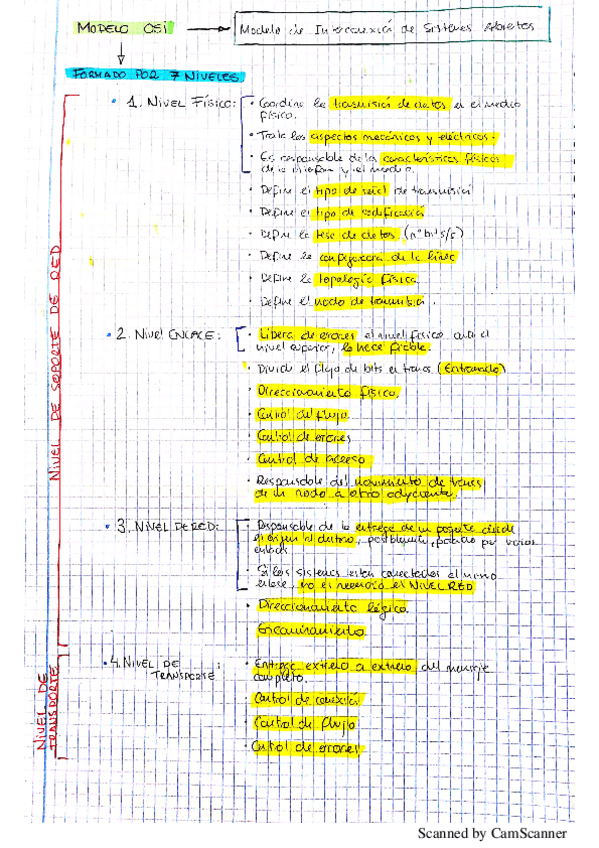 MODELO OSI → Modelo de Interconexión de Sistemas Abiertos
FORMADO POR 7 NIVELES
NIVEL DE SOPORTE DE RED
• 1. NIVEL FÍSICO: • Coordina la transmisión de datos en el medio
físico.
• Trata los aspectos mecánicos y eléctricos.
• Es responsable de las características físicas
de la interfaz y el medio.
• Define el tipo de señal de transmisión
• Define el tipo de codificación
• Define la tasa de datos (nº bits/s)
• Define la configuración de la línea
• Define la topología física.
• Define el modo de transmisión.
• 2. NIVEL ENLACE: • Libera de errores el nivel físico ante el
nivel superior, lo hace fiable.
• Divide el flujo de bits en tramas (Entramado)
• Direccionamiento físico.
• Control del flujo.
• Control de errores
• Control de acceso
• Responsable del movimiento de tramas
de un nodo a otro adyacente.
• 3. NIVEL DE RED: • Responsable de la entrega de un paquete desde
el origen al destino, posiblemente, pasando por varios
enlaces
• Si los sistemas están conectados al mismo
enlace, no es necesario el NIVEL RED
• Direccionamiento lógico.
• Encaminamiento.
NIVEL DE
TRANSPORTE
• 4. NIVEL DE
TRANSPORTE : • Entrega extremo a extremo del mensaje
completo.
• Control de conexión
• Control de flujo
• Control de errores
Scanned by CamScanner